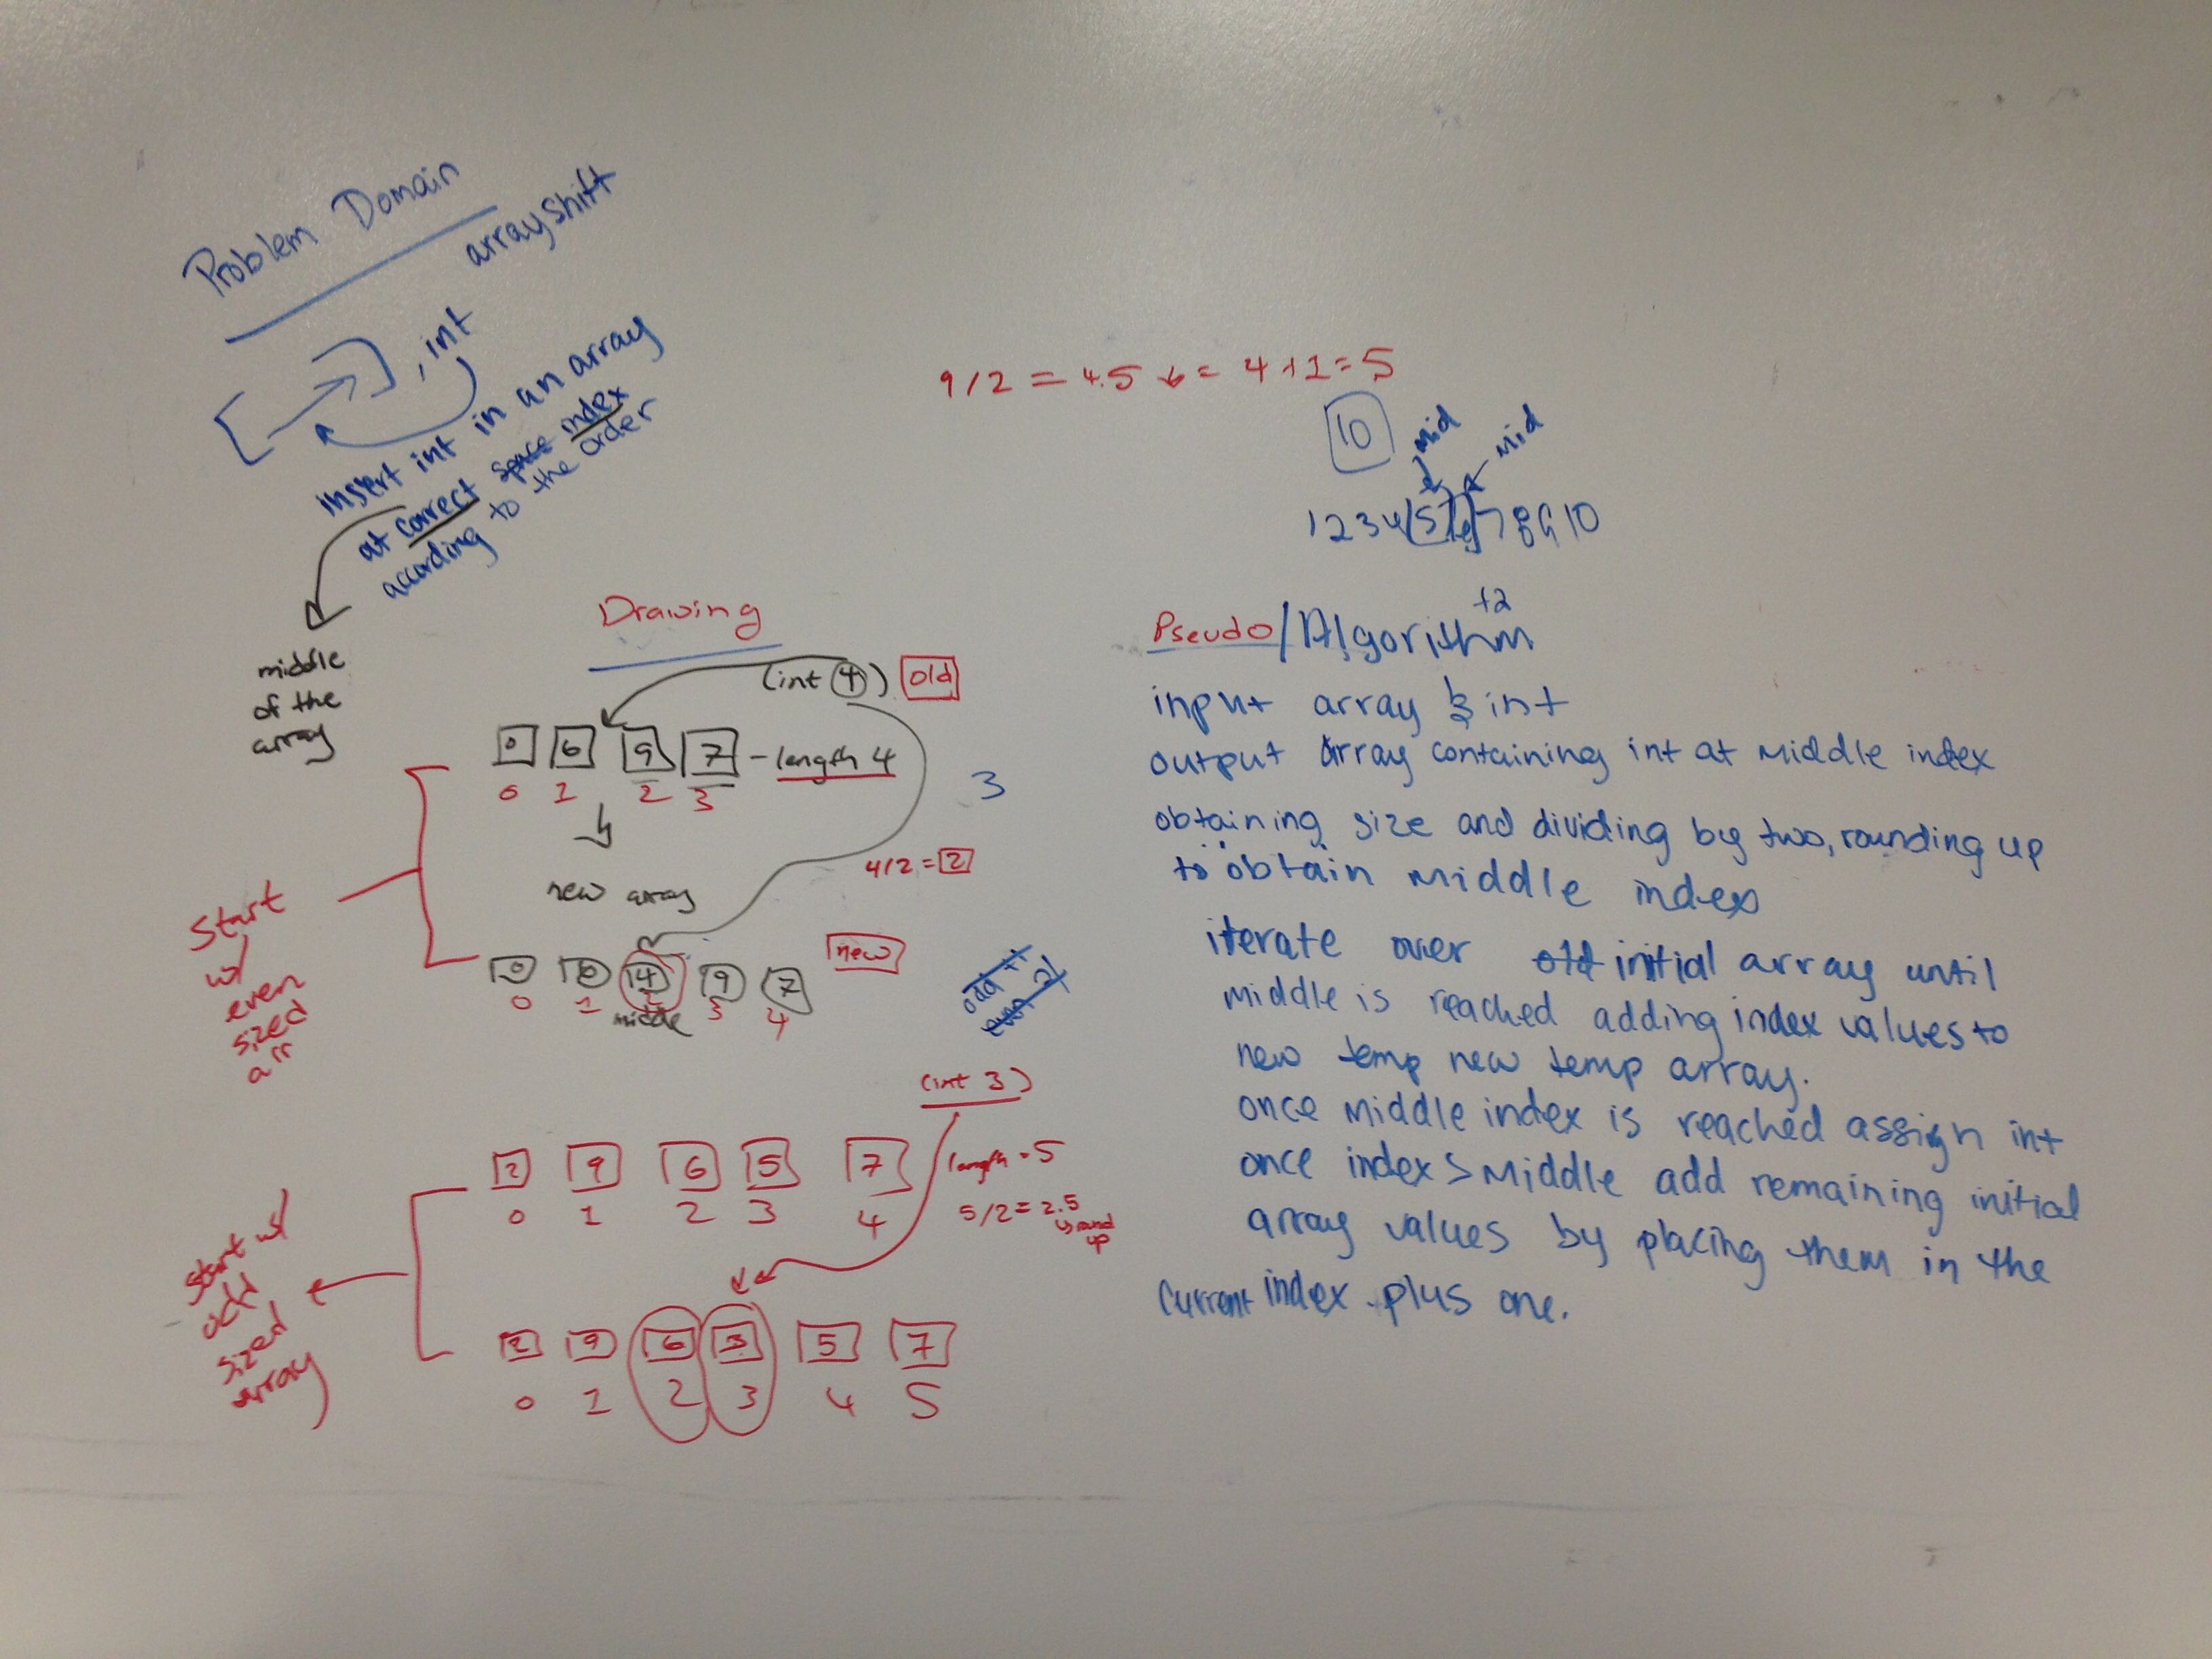 Problem Domain
arrayshift
[ ], int
insert int in an array
at correct space index
according to the order
middle
of the
array
9/2 = 4.5 = 4+1=5
10
mid mid
1 2 3 4 5 6 7 8 9 10
Drawing
(int 4) old
0 6 9 7 - length 4
0 1 2 3
3
4/2 = 2
new array
new
0 6 4 9 7
0 1 2 3 4
middle
odd +1
even +2
Start
w/
even
sized
arr
(int 3)
2 9 6 5 7
0 1 2 3 4
length = 5
5/2 = 2.5
round
up
Start w/
odd
sized
array
2 9 6 3 5 7
0 1 2 3 4 5
+2
Pseudo/Algorithm
input array & int
output array containing int at middle index
obtaining size and dividing by two, rounding up
to obtain middle index
iterate over old initial array until
middle is reached adding index values to
new temp new temp array.
once middle index is reached assign int
once index > middle add remaining initial
array values by placing them in the
current index plus one.